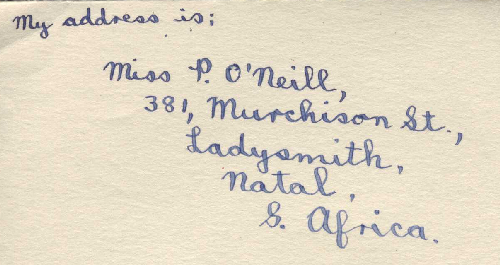 My address is:
Miss P. O'Neill,
381, Murchison St.,
Ladysmith,
Natal,
S. Africa.